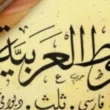 ط العربية
رسي - ثلث - ديواني